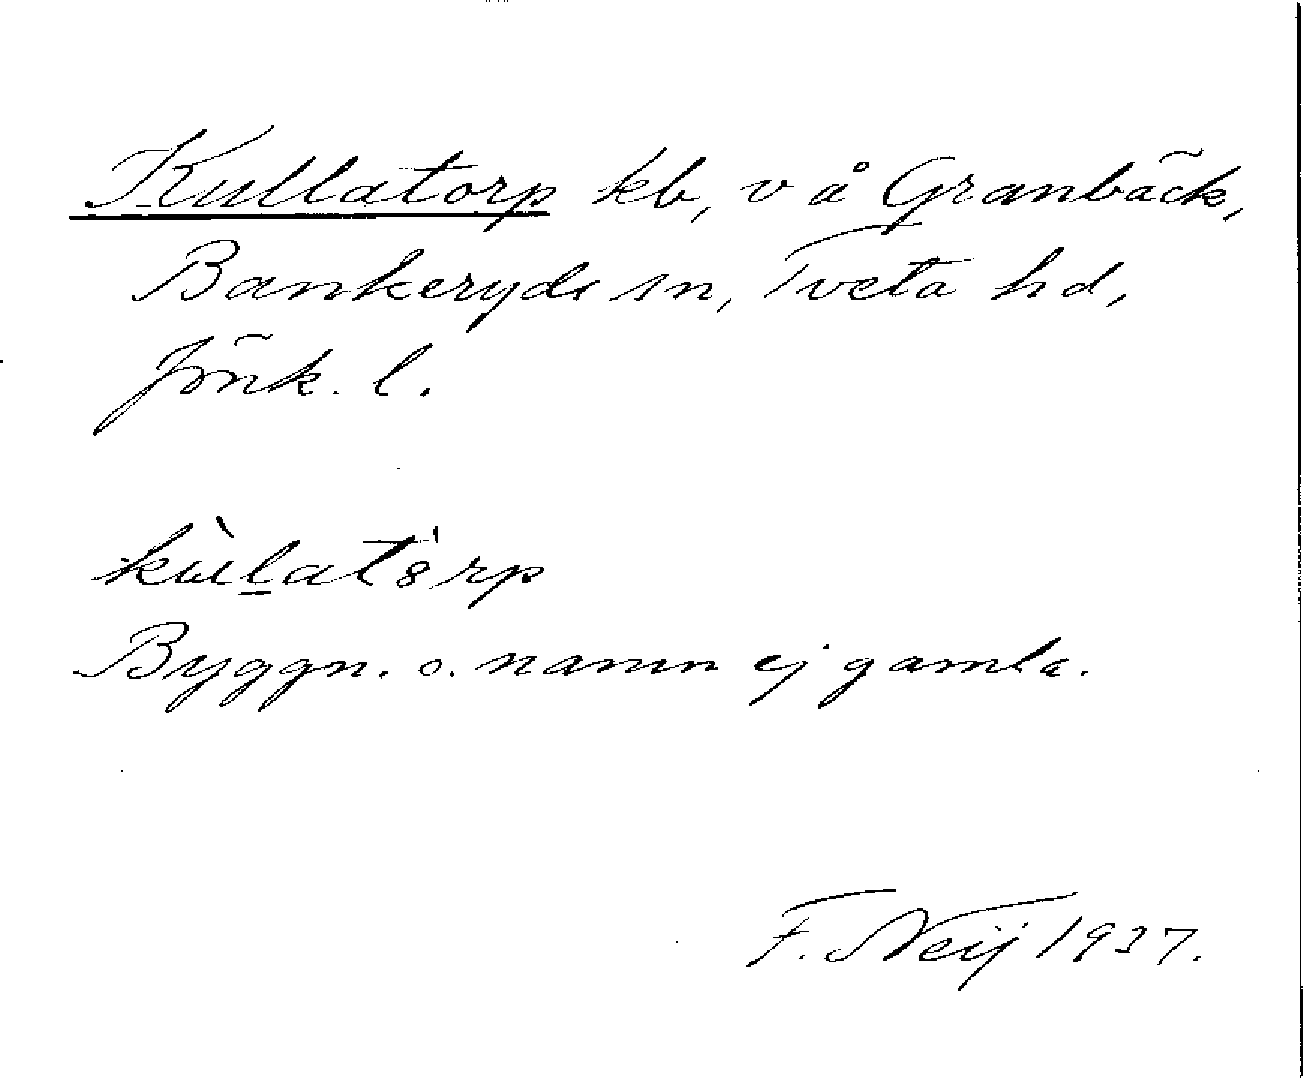 Kullatorp kb, v å Granbäck,
Bankeryds sn, Tveta hd,
Jönk. l.
kùl̲at8́rp
Byggn. o. namn ej gamla.
F. Neij 1937.